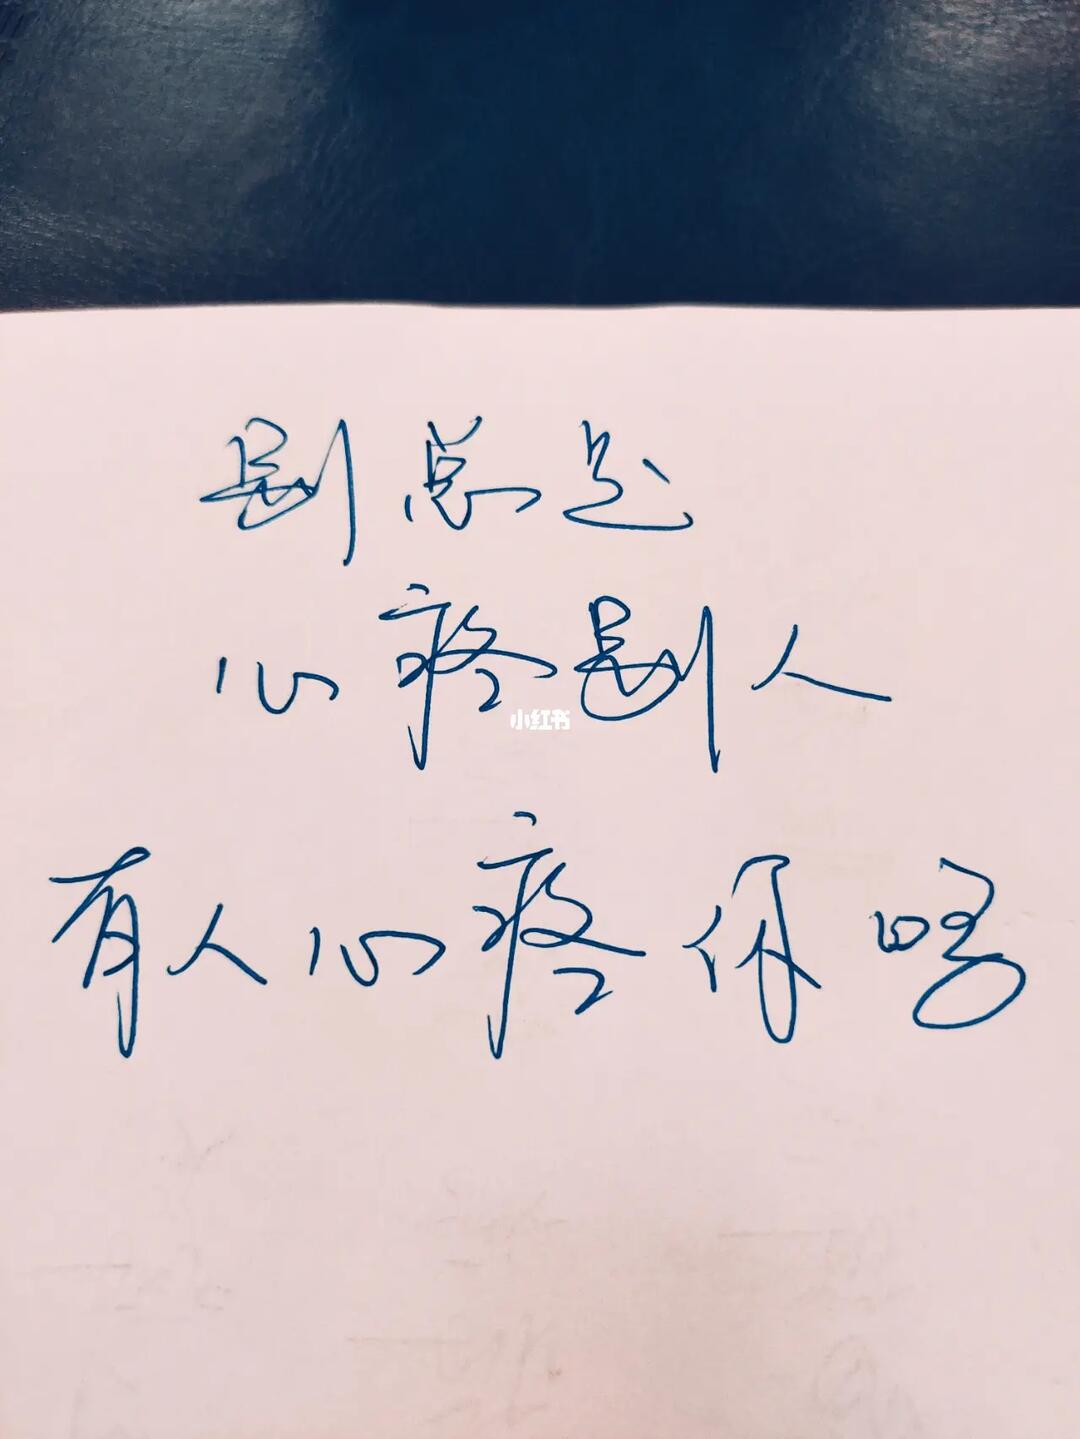 别总是
心疼别人
小红书
有人心疼你吗